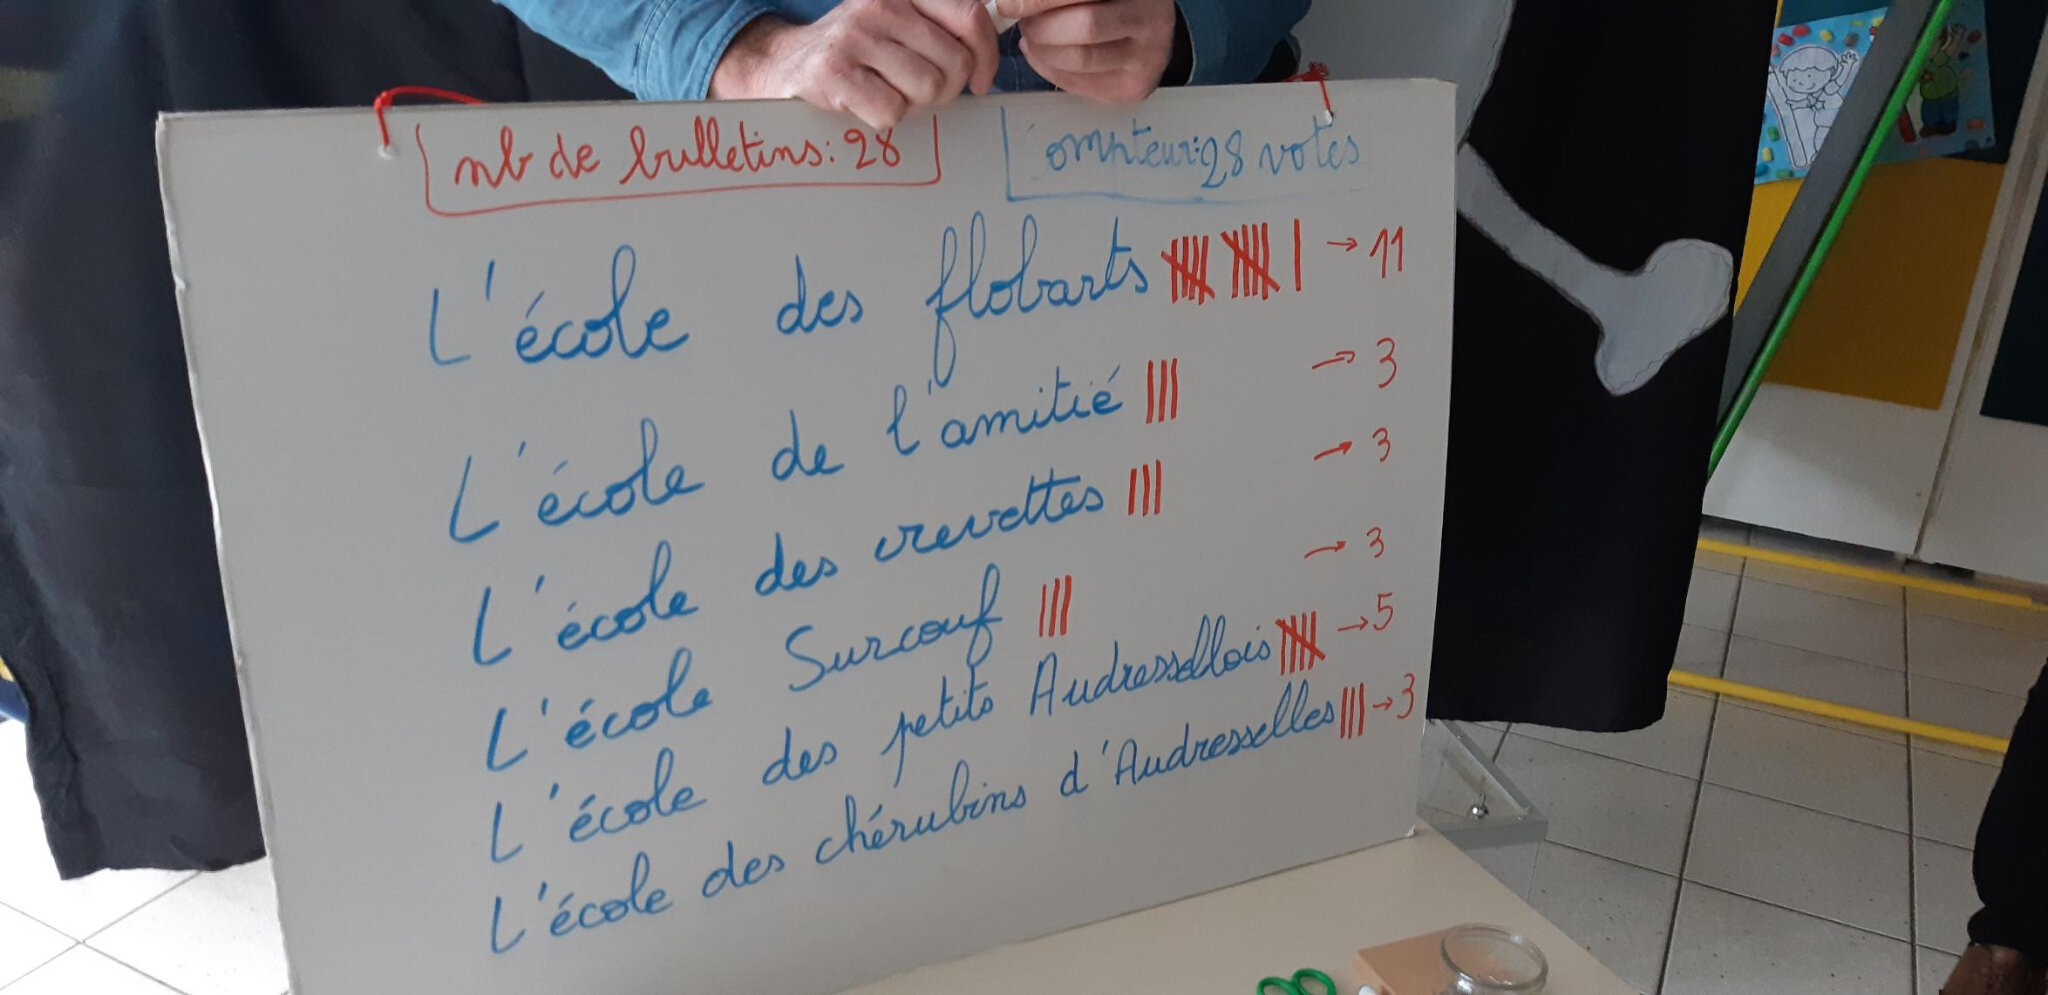 nb de bulletins : 28
Compteur : 28 votes
L'école des flobarts → 11
L'école de l'amitié → 3
L'école des crevettes → 3
L'école Surcouf → 3
L'école des petits Audressellois → 5
L'école des chérubins d'Audresselles → 3